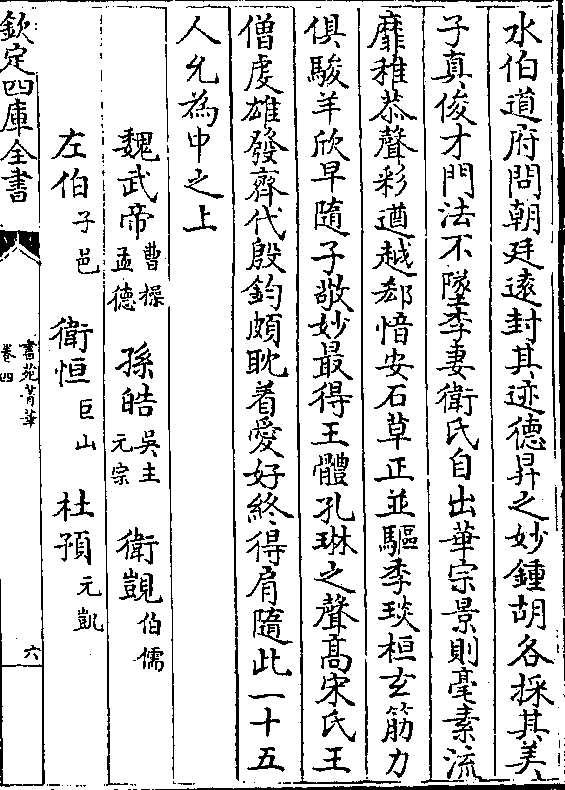 水伯道府問朝廷遠封其迹德昇之妙鍾胡各採其美
子真俊才門法不墜李妻衛氏自出華宗景則毫素流
靡稚恭聲彩遒越郄愔安石草正並驅季琰桓玄筋力
俱駿羊欣早隨子敬妙最得王體孔琳之聲高宋氏王
僧虔雄發齊代殷鈞頗耽着愛好終得肩隨此一十五
人允為中之上
魏武帝曹操孟德 孫皓吳主元宗 衛覬伯儒
左伯子邑 衛恒巨山 杜預元凱
欽定四庫全書 書苑菁華 卷四 六